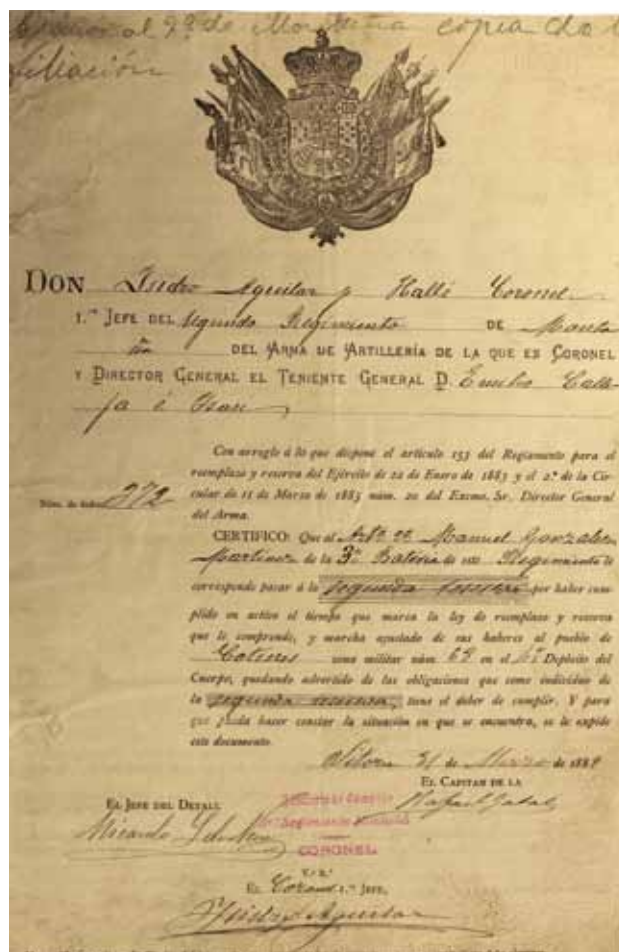 al 9º de Montaña copia de l
filiación
DON Isidro Aguilar y Hallé Coronel
1.er JEFE DEL Segundo Regimiento DE Monta
ña DEL ARMA DE ARTILLERÍA DE LA QUE ES CORONEL
Y DIRECTOR GENERAL EL TENIENTE GENERAL D. Emilio Calle
ja é Isasi
Con arreglo á lo que dispone el artículo 153 del Reglamento para el
reemplazo y reserva del Ejército de 22 de Enero de 1883 y el 2.º de la Cir-
cular de 11 de Marzo de 1885 núm. 20 del Excmo. Sr. Director General
del Arma.
Núm. de orden 372
CERTIFICO: Que el Art.º 2º Manuel Gonzalez
Martinez de la 3ª Batería de este Regimiento le
corresponde pasar á la segunda reserva por haber cum-
plido en activo el tiempo que marca la ley de reemplazo y reserva
que le comprende, y marcha ajustado de sus haberes al pueblo de
como militar núm. 68 en el 6º Depósito del
Cuerpo, quedando advertido de las obligaciones que como individuo de
la segunda reserva, tiene el deber de cumplir. Y para
que pueda hacer constar la situación en que se encuentra, se le expide
este documento.
Vitoria 31 de Marzo de 188
EL CAPITAN DE LA
EL JEFE DEL DETALL
Rafael
Ricardo
Regimiento
CORONEL
V.º B.º
EL Coronel 1.er JEFE,
Isidro Aguilar